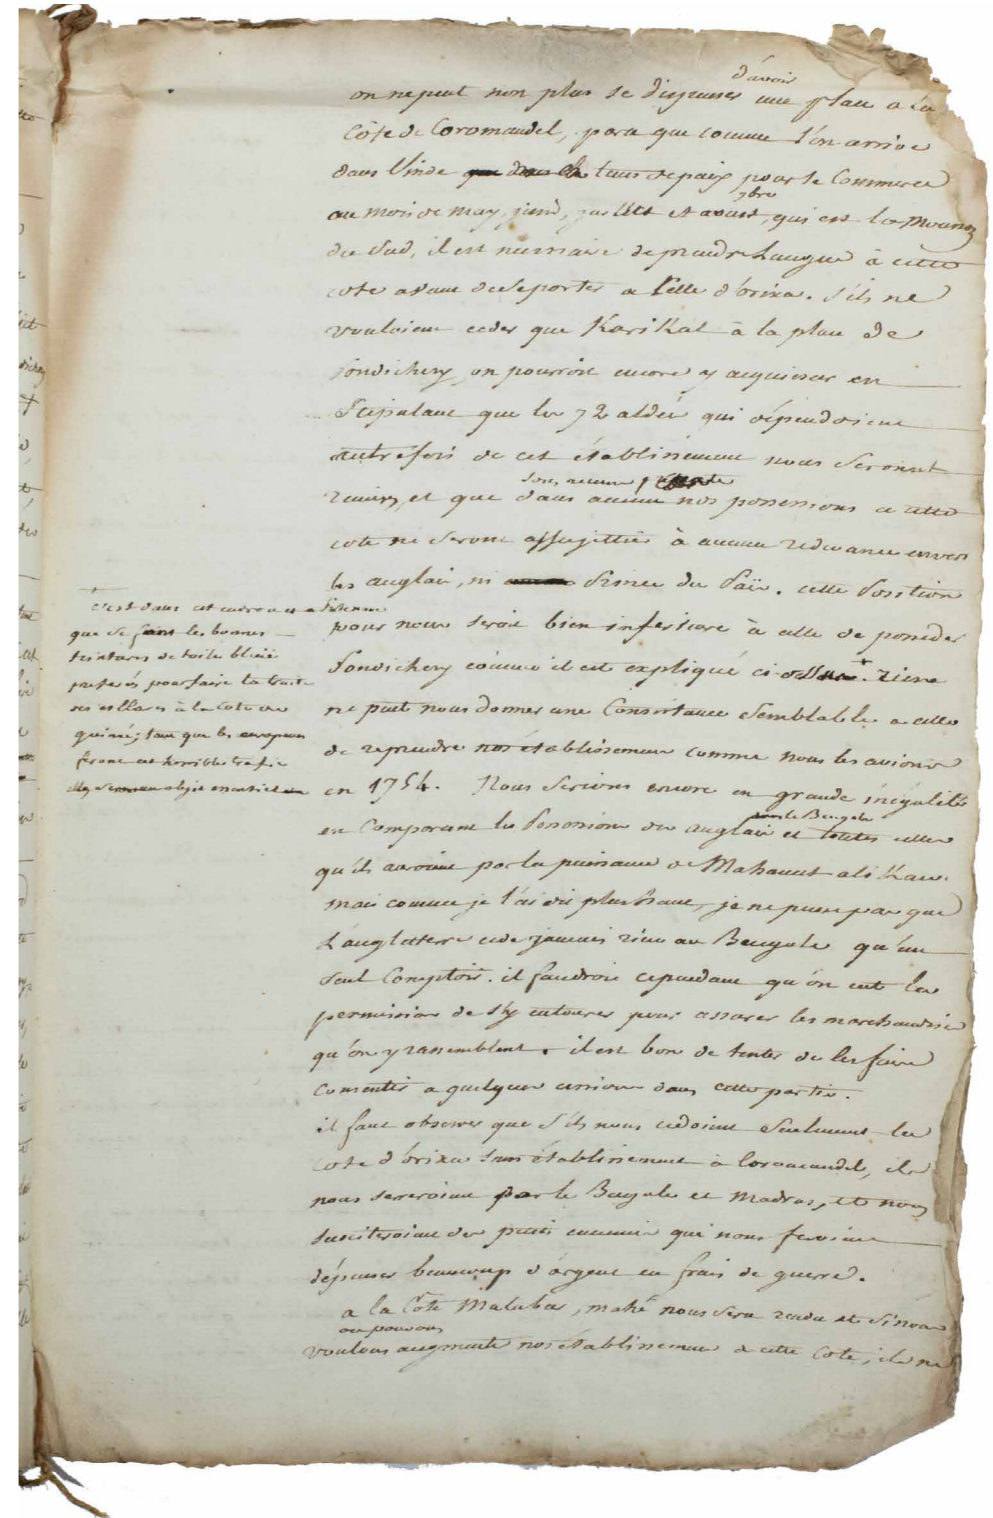 d'avoir
on ne peut non plus se dispenser une place a la
Côte de Coromandel, parce que comme l'on arrive
dans l'inde que dans le tems de paix pour le Commerce
7bre
au mois de may, juin, juillet et aoust, qui est la Mousson
du Sud, il est necessaire de prendre Langue à cette
cote avant de se porter a celle d'orixa. S'ils ne
vouloient ceder que Karikal à la place de
pondichery, on pourroit encore y acquiescer en
Stipulant que les 72 aldées qui dépendoient
autrefois de cet établissement nous seroient
sous aucun prétexte
remises, et que dans aucun nos possessions a cette
cote ne seront assujetties à aucune redevance envers
les anglais, ni Prince du Païs. cette Position
pour nous seroit bien inferieure à celle de posseder
Pondichery comme il est expliqué ci-dessus + rien
ne peut nous donner une Consistance Semblable a celle
de reprendre nos établissemens comme nous les avions
en 1754. Nous serions encore en grande inégalité
dans le Bengale
en Comparant les Possessions des anglais et toutes celles
qu'ils auroient par la puissance de Mahamet ali Kan.
mais comme je l'ai dit plus haut, je ne pense pas que
L'angleterre cede jamais rien au Bengale qu'un
seul Comptoir. il faudroit cependant qu'on eut la
permission de s'y entourer pour assurer les marchandises
qu'on y rassemblent. il est bon de tenter de les faire
consentir a quelques cessions dans cette partie.
il faut observer que s'ils nous cedoient seulement la
cote d'orixa sans établissement à Coromandel, ils
nous serreroient par le Bengale et Madras, et nous
susciteroient des petits ennemis qui nous feroient
dépenser beaucoup d'argent en frais de guerre.
a la Côte Malabar, mahé nous sera rendu et si nous
ou pouvons
voulons augmenter nos établissemens a cette Cote, ils ne
+ C'est dans cet endroit
que se font les bonnes
teintures de toile bleüe
preferés pour faire la traite
des esclaves à la Cote de
guinée; tant que les europeens
feront cet horrible trafic
objet essentiel